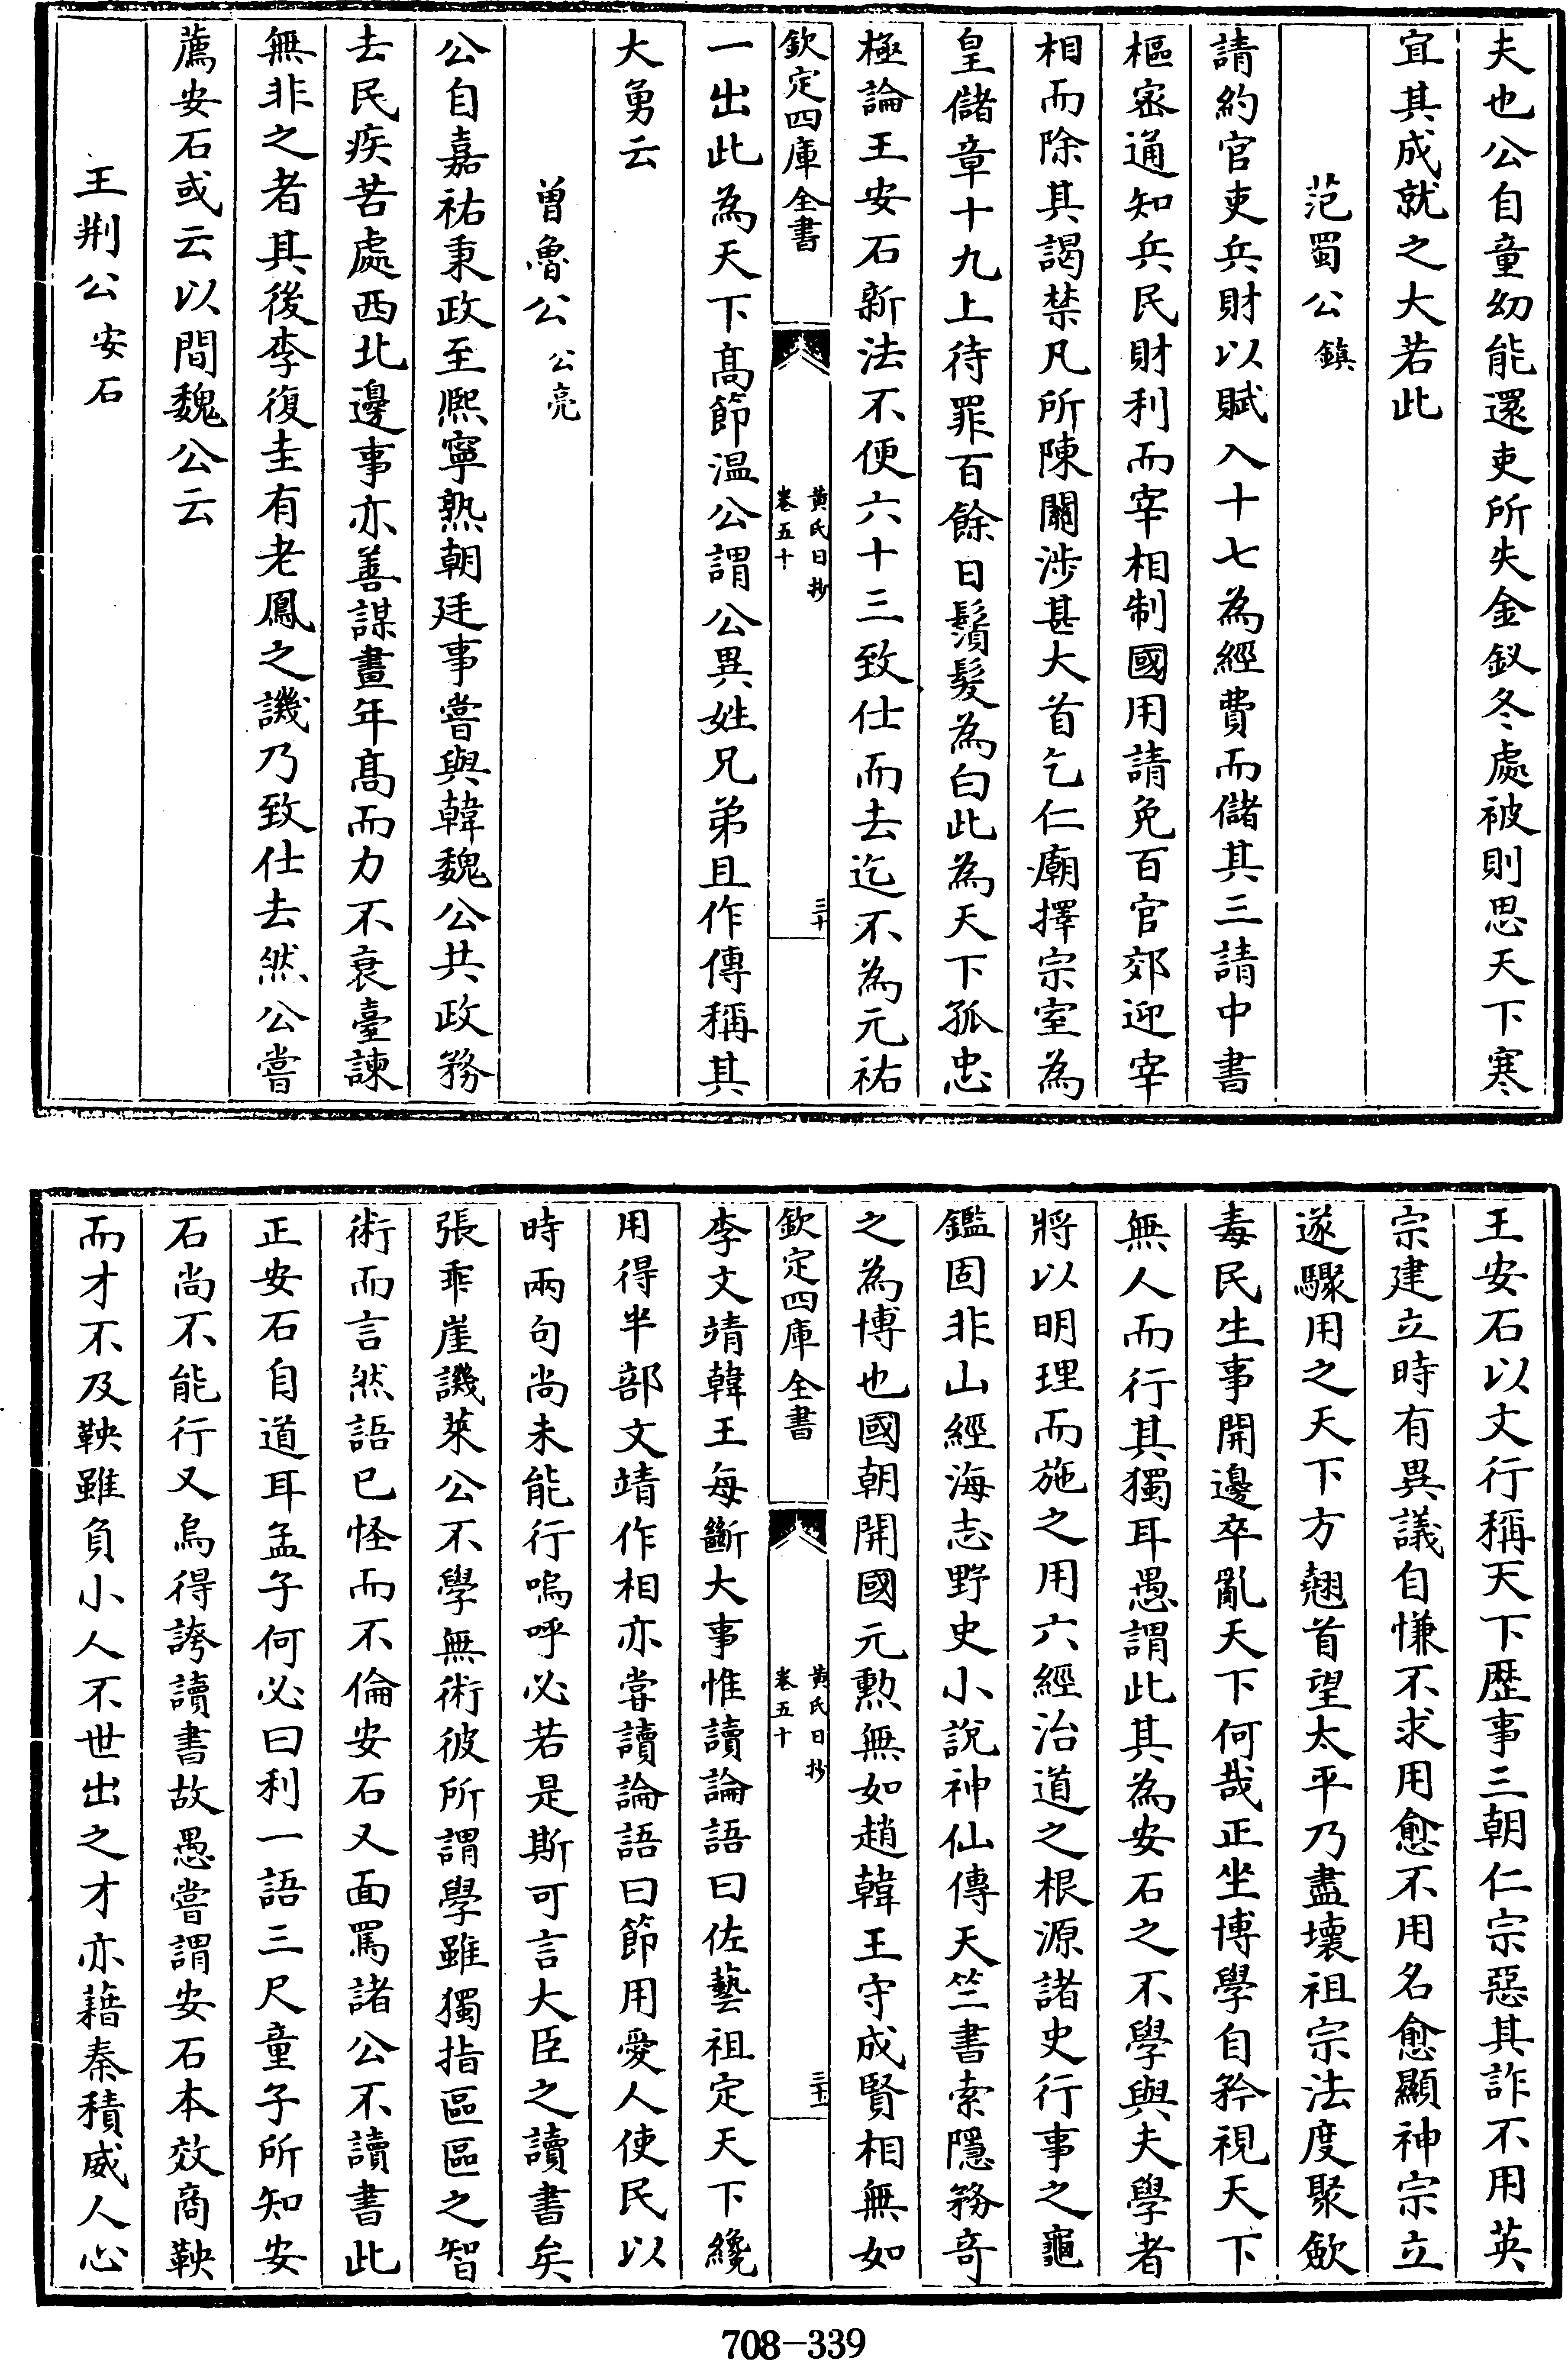 夫也公自童幼能還吏所失金釵冬處被則思天下寒
宜其成就之大若此
范蜀公鎮
請約官吏兵財以賦入十七為經費而儲其三請中書
樞密通知兵民財利而宰相制國用請免百官郊迎宰
相而除其謁禁凡所陳關涉甚大首乞仁廟擇宗室為
皇儲章十九上待罪百餘日鬚髮為白此為天下孤忠
極論王安石新法不便六十三致仕而去迄不為元祐
欽定四庫全書
黃氏日抄
卷五十
三十
一出此為天下高節温公謂公異姓兄弟且作傳稱其
大勇云
曾魯公公亮
公自嘉祐秉政至熈寧熟朝廷事嘗與韓魏公共政務
去民疾苦處西北邊事亦善謀畫年高而力不衰臺諫
無非之者其後李復圭有老鳳之譏乃致仕去然公嘗
薦安石或云以間魏公云
王荆公安石
王安石以文行稱天下歴事三朝仁宗惡其詐不用英
宗建立時有異議自慊不求用愈不用名愈顯神宗立
遂驟用之天下方翹首望太平乃盡壞祖宗法度聚歛
毒民生事開邊卒亂天下何哉正坐博學自矜視天下
無人而行其獨耳愚謂此其為安石之不學與夫學者
將以明理而施之用六經治道之根源諸史行事之龜
鑑固非山經海志野史小說神仙傳天竺書索隱務奇
之為博也國朝開國元勲無如趙韓王守成賢相無如
欽定四庫全書
黃氏日抄
卷五十
三十一
李文靖韓王每斷大事惟讀論語曰佐藝祖定天下纔
用得半部文靖作相亦嘗讀論語曰節用愛人使民以
時兩句尚未能行嗚呼必若是斯可言大臣之讀書矣
張乖崖譏萊公不學無術彼所謂學雖獨指區區之智
術而言然語已怪而不倫安石又面罵諸公不讀書此
正安石自道耳孟子何必曰利一語三尺童子所知安
石尚不能行又烏得誇讀書故愚嘗謂安石本效商鞅
而才不及鞅雖負小人不世出之才亦藉秦積威人心
708-339